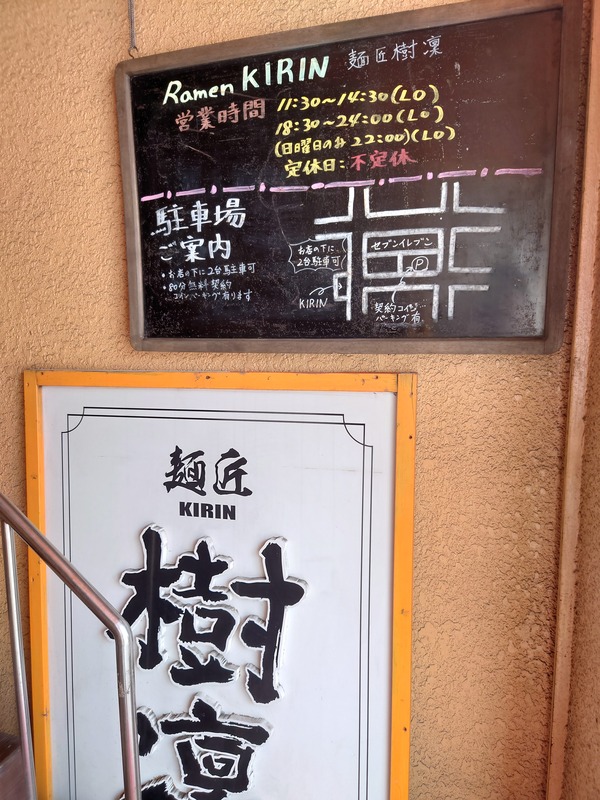 Ramen KIRIN 麺匠樹凛
営業時間 11:30~14:30(LO)
18:30~24:00(LO)
(日曜日のみ 22:00)(LO)
定休日:不定休
駐車場
ご案内
・お店の下に2台駐車可
・80分無料契約
コインパーキング有ります
お店の下に
2台駐車可
KIRIN
セブンイレブン
P
契約コイン
パーキング有
麺匠
KIRIN
樹
凛